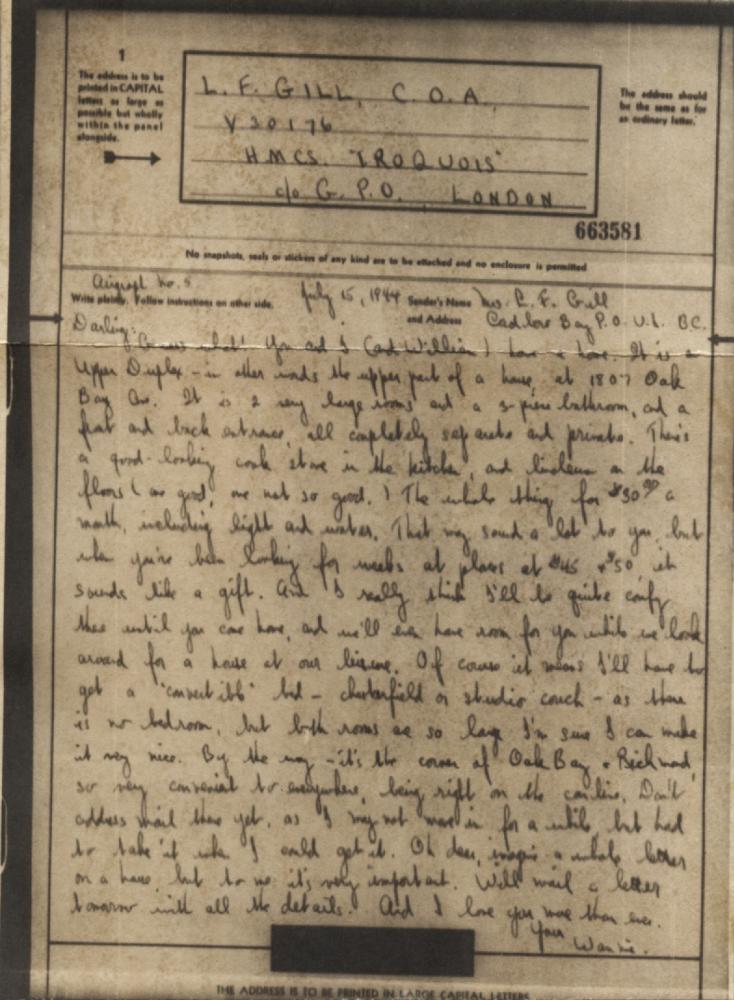 1
The address is to be
printed in CAPITAL
letters as large as
possible but wholly
within the panel
alongside.
L. F. GILL, C.O.A.,
V 30176
H.M.C.S. "IROQUOIS"
c/o G.P.O., LONDON
The address should
be the same as for
an ordinary letter.
663581
No snapshots, seals or stickers of any kind are to be attached and no enclosure is permitted
Airgraph No. 5
Write plainly. Follow instructions on other side.
July 15, 1944
Sender's Name Mrs. L. F. Gill
and Address Cadboro Bay P.O. V.I. BC.
Darling:
Guess what! You and I (and William) have a home. It is an
Upper Duplex – in other words the upper part of a house, at 1807 Oak
Bay Ave. It is 2 very large rooms and a 3-piece bathroom, and a
front and back entrance, all completely separate and private. There's
a good-looking cook stove in the kitchen, and linoleum on the
floors (one good, one not so good.) The whole thing for $30.00 a
month, including light and water. That may sound a lot to you, but
when you've been looking for weeks at places at $45 + $50, it
sounds like a gift. And I really think I'll be quite comfy
there until you come home, and we'll even have room for you while we look
around for a house at our leisure. Of course it means I'll have to
get a "convertible" bed – chesterfield or studio couch – as there
is no bedroom, but both rooms are so large I'm sure I can make
it very nice. By the way – it's the corner of Oak Bay + Richmond,
so very convenient to everywhere, being right on the carline. Don't
address mail there yet, as I may not move in for a while, but had
to take it when I could get it. Oh dear, imagine a whole letter
on a house, but to me it's very important. Will mail a letter
tomorrow with all the details. And I love you more than ever.
Your
THE ADDRESS IS TO BE PRINTED IN LARGE CAPITAL LETTERS